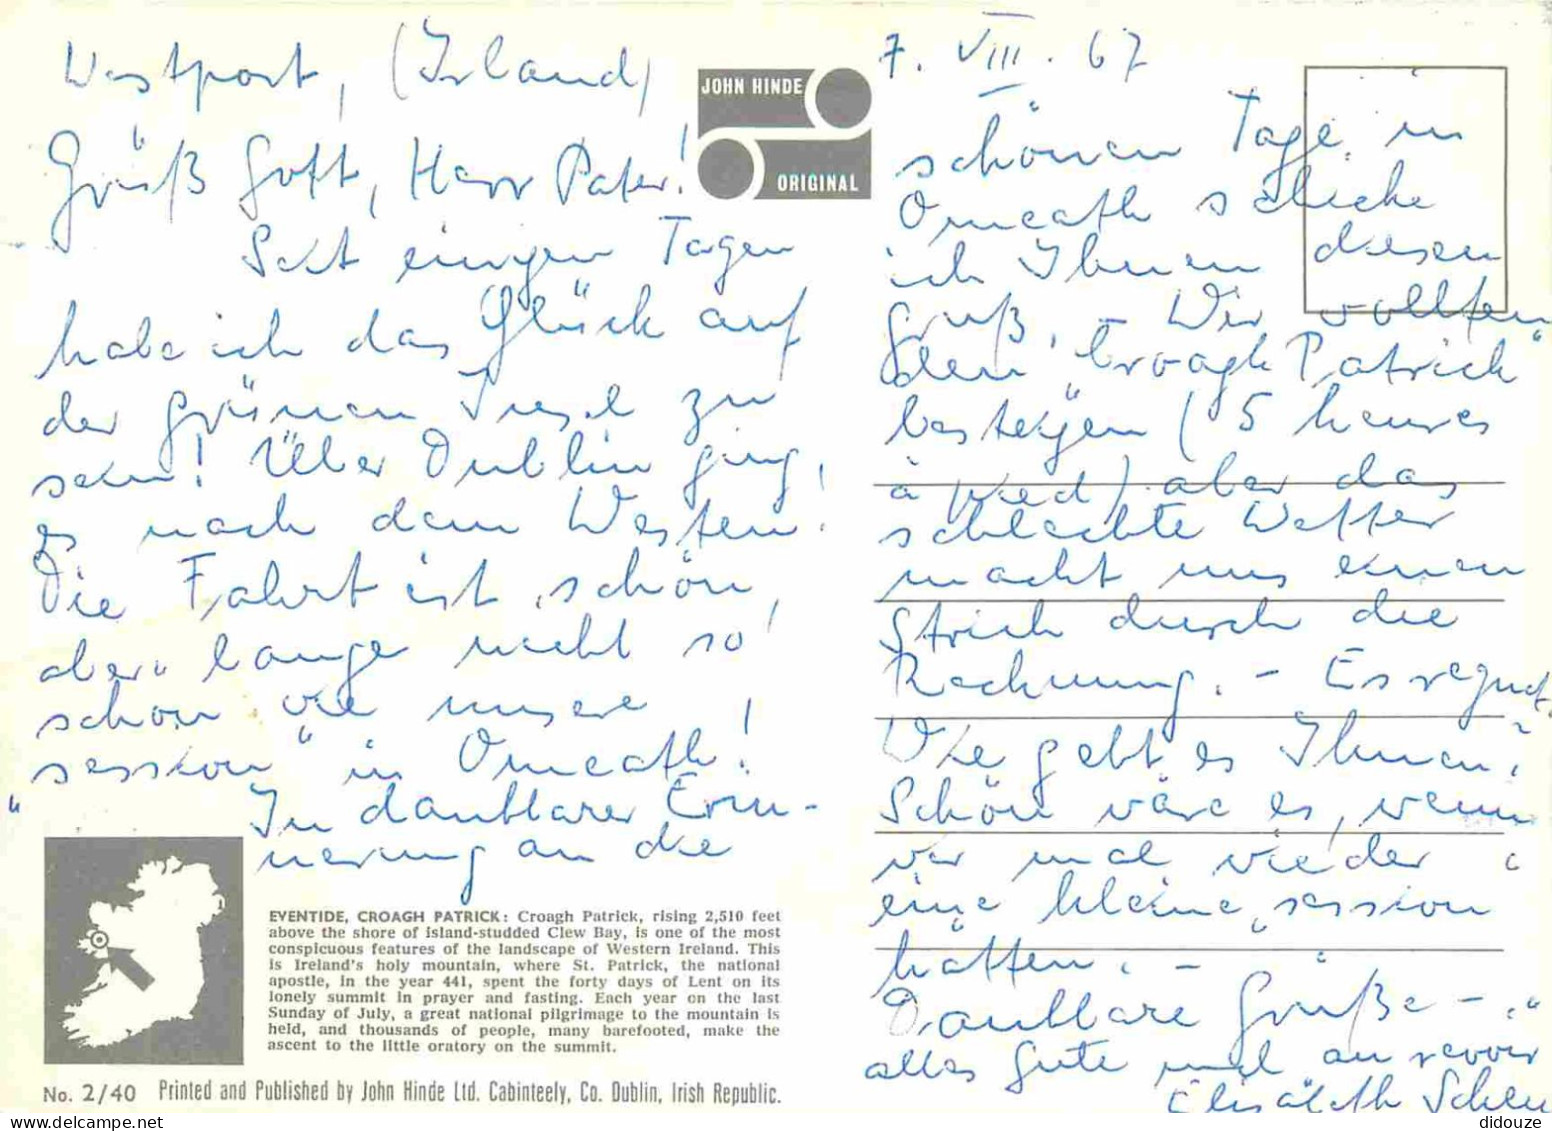 Westport, (Irland)
Grüß Gott, Herr Pater!
Seit einigen Tagen
habe ich das Glück auf
der grünen Insel zu
sein! Über Dublin ging
es nach dem Westen!
Die Fahrt ist schön,
aber lange nicht so
schön wie unsere
"session" in Omeath!
In dankbarer Erin-
nerung an die
JOHN HINDE
ORIGINAL
EVENTIDE, CROAGH PATRICK: Croagh Patrick, rising 2,510 feet
above the shore of island-studded Clew Bay, is one of the most
conspicuous features of the landscape of Western Ireland. This
is Ireland's holy mountain, where St. Patrick, the national
apostle, in the year 441, spent the forty days of Lent on its
lonely summit in prayer and fasting. Each year on the last
Sunday of July, a great national pilgrimage to the mountain is
held, and thousands of people, many barefooted, make the
ascent to the little oratory on the summit.
No. 2/40 Printed and Published by John Hinde Ltd. Cabinteely, Co. Dublin, Irish Republic.
7. VIII. 67
schönen Tage in
Omeath schicke
ich Ihnen diesen
Gruß. - Wir wollten
den "Croagh Patrick"
besteigen (5 heures
à pied) aber das
schlechte Wetter
macht uns einen
Strich durch die
Rechnung. - Es regnet.
Wie geht es Ihnen?
Schön wäre es, wenn
wir mal wieder
eine kleine "session"
hätten. -
Dankbare Grüße -
alles Gute und au revoir
Elisabeth
didouze